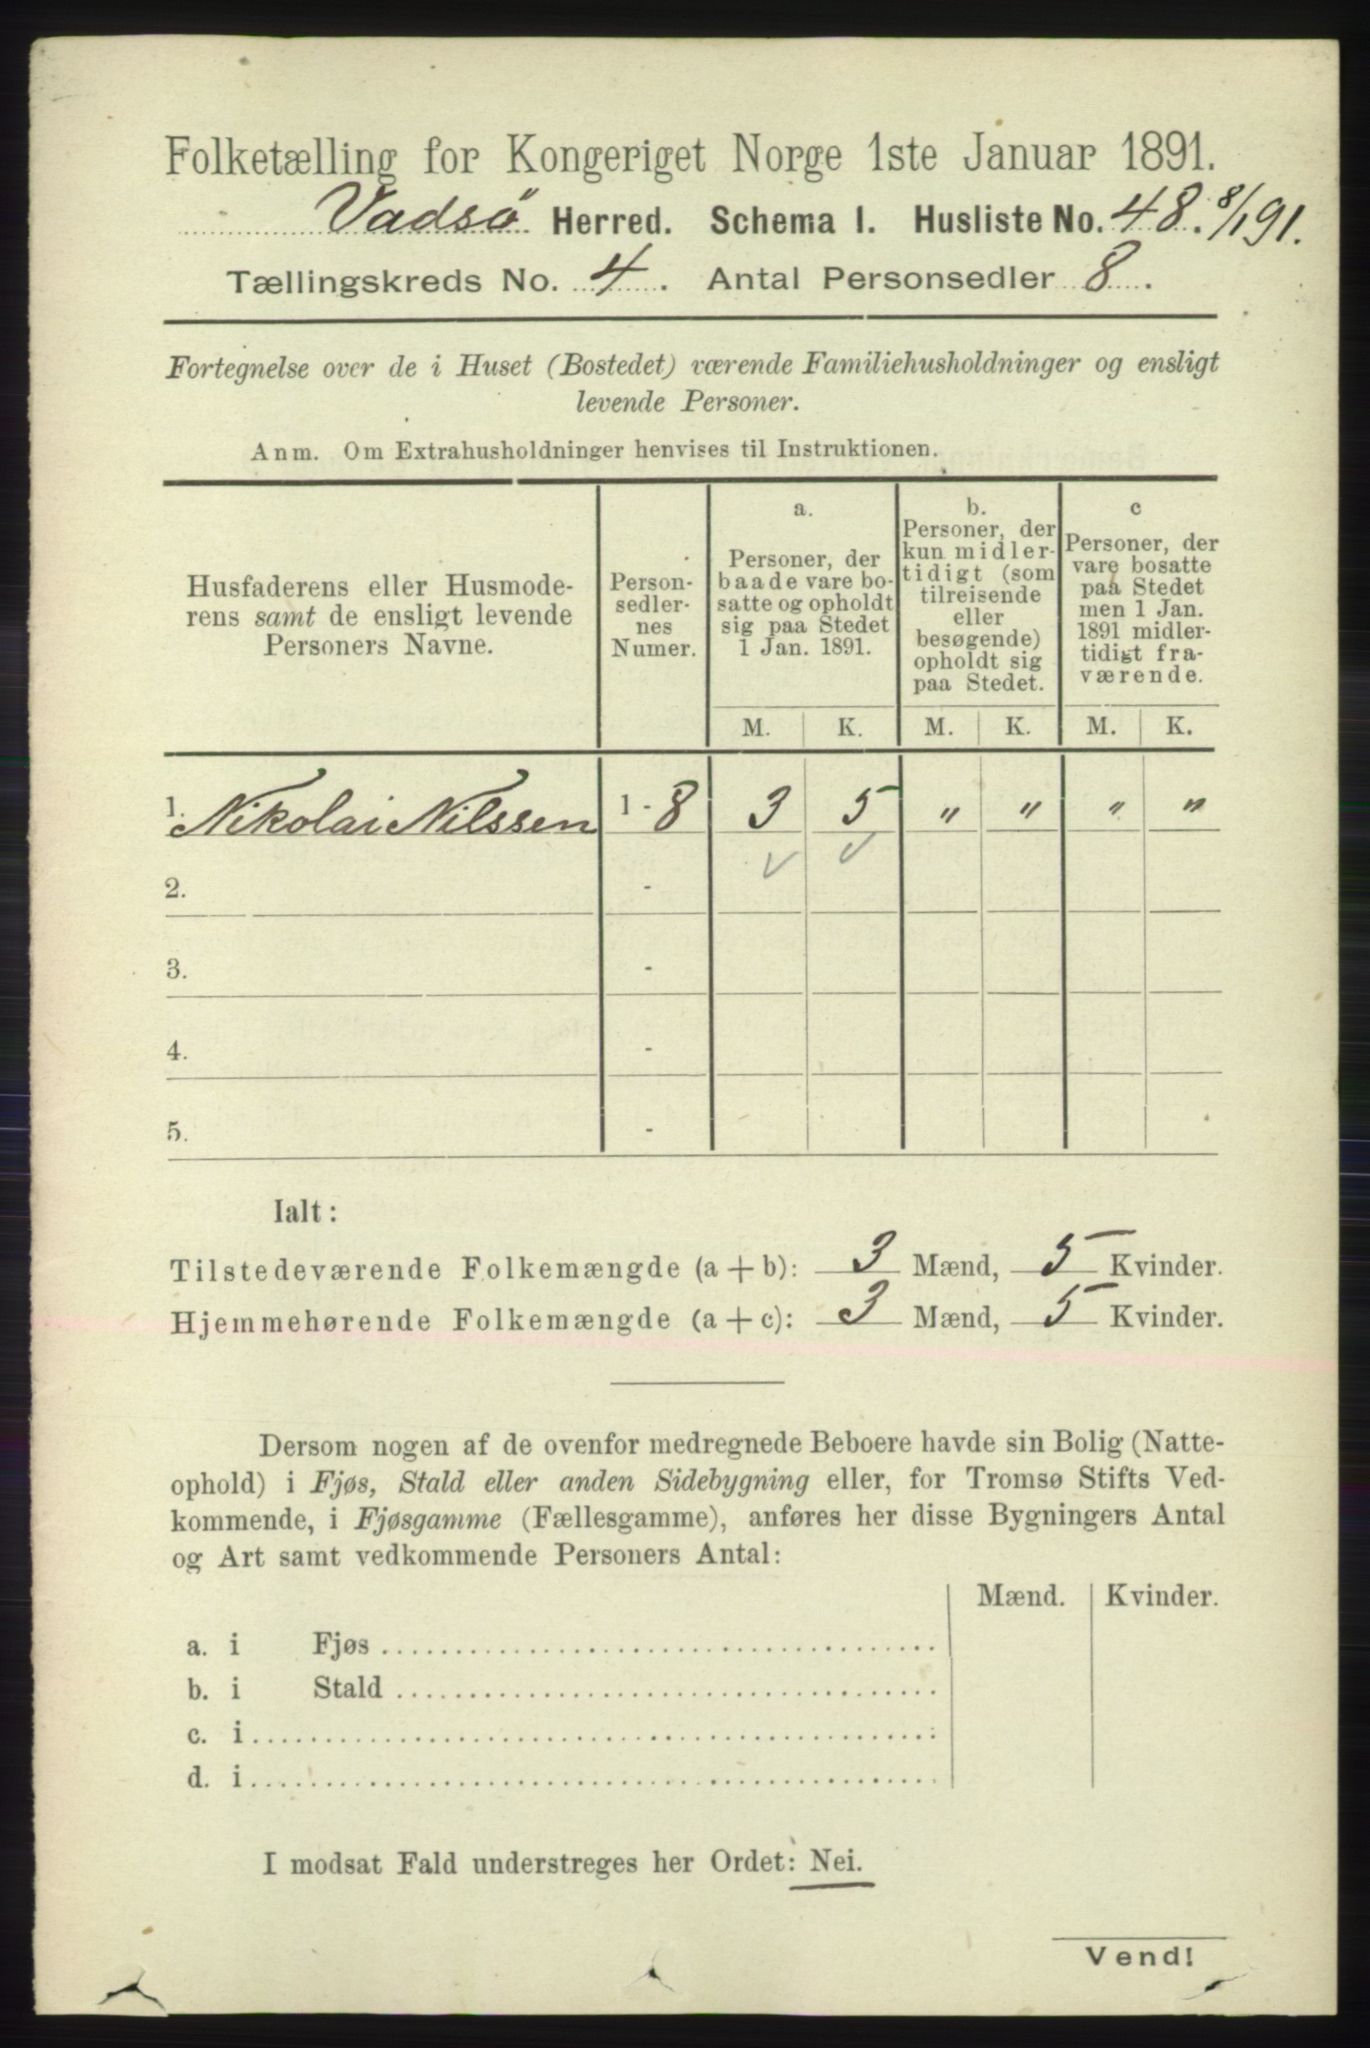 Folketælling for Kongeriget Norge 1ste Januar 1891.
Vadsö Herred. Schema I. Husliste No. 48. 8/1 91.
Tællingskreds No. 4. Antal Personsedler 8.
Fortegnelse over de i Huset (Bostedet) værende Familiehusholdninger og ensligt
levende Personer.
Anm. Om Extrahusholdninger henvises til Instruktionen.
Husfaderens eller Husmode-
rens samt de ensligt levende
Personers Navne.
Person-
sedler-
nes
Numer.
a.
Personer, der
baade vare bo-
satte og opholdt
sig paa Stedet
1 Jan. 1891.
b.
Personer, der
kun midler-
tidigt (som
tilreisende
eller
besøgende)
opholdt sig
paa Stedet.
c
Personer, der
vare bosatte
paa Stedet
men 1 Jan.
1891 midler-
tidigt fra-
værende.
M. K. M. K. M. K.
1. Nikolai Nilssen 1 - 8 3 5 " " " "
2. -
3. -
4. -
5. -
Ialt:
Tilstedeværende Folkemængde (a + b): 3 Mænd, 5 Kvinder.
Hjemmehørende Folkemængde (a + c): 3 Mænd, 5 Kvinder.
Dersom nogen af de ovenfor medregnede Beboere havde sin Bolig (Natte-
ophold) i Fjøs, Stald eller anden Sidebygning eller, for Tromsø Stifts Ved-
kommende, i Fjøsgamme (Fællesgamme), anføres her disse Bygningers Antal
og Art samt vedkommende Personers Antal:
Mænd. Kvinder.
a. i Fjøs
b. i Stald
c. i
d. i
I modsat Fald understreges her Ordet: Nei.
Vend!